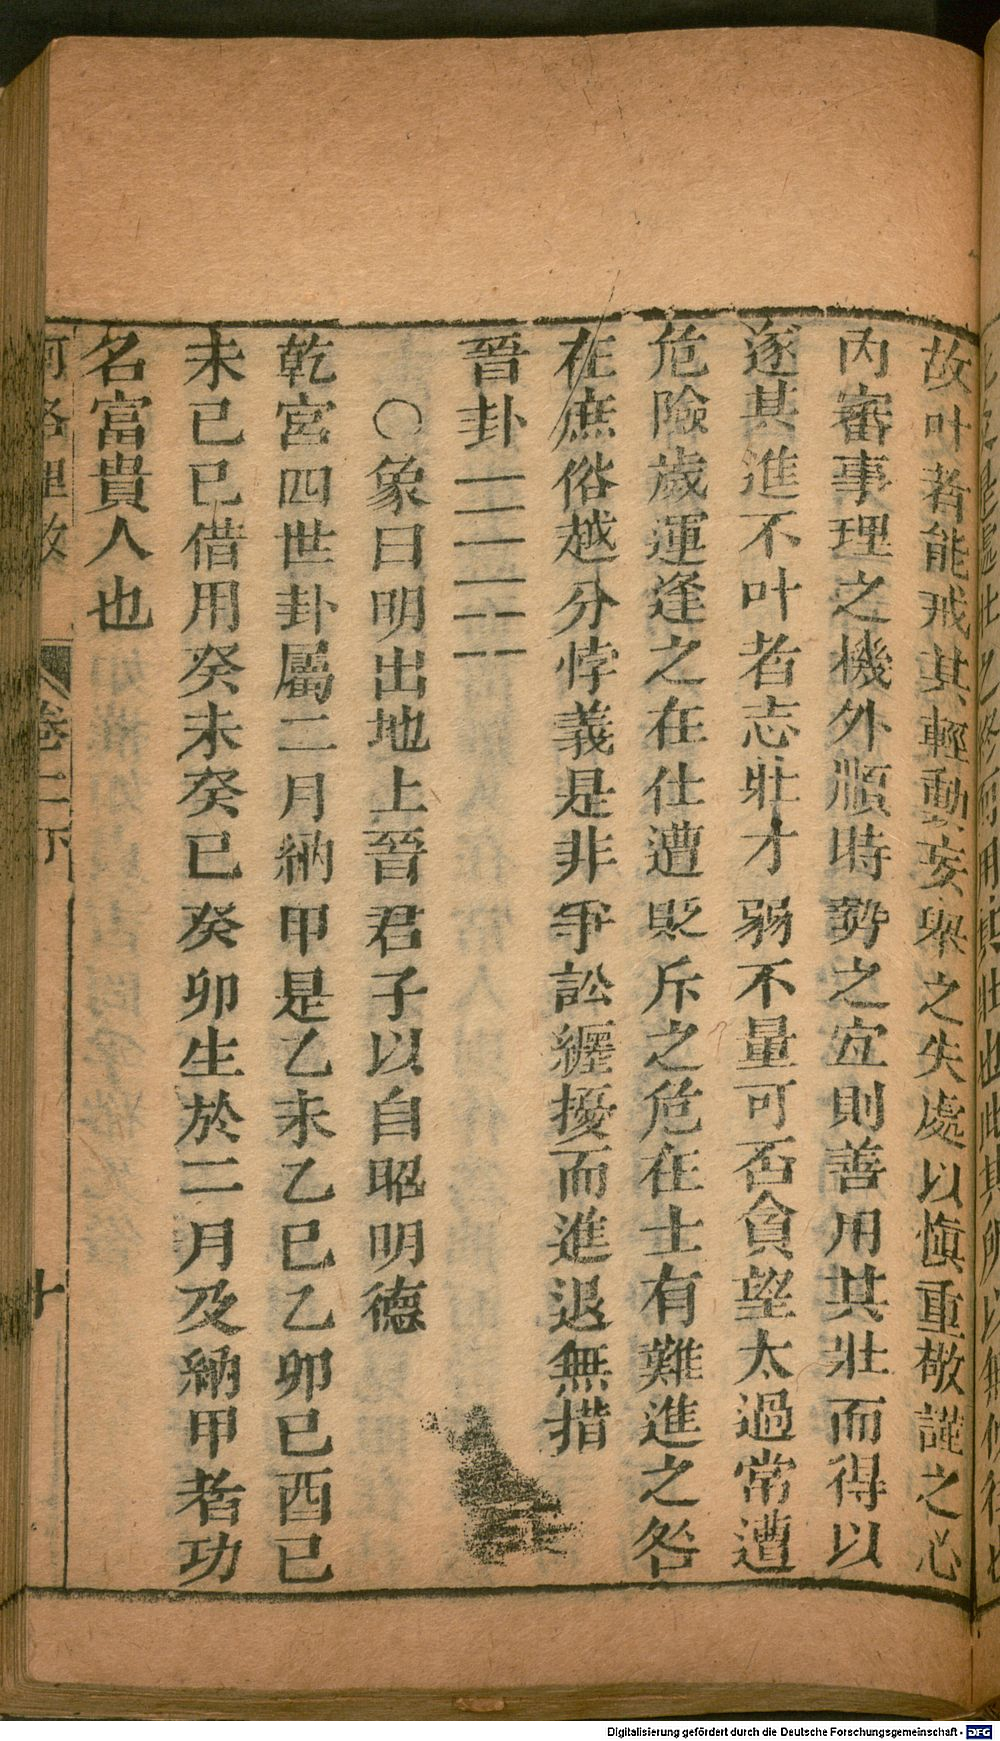 故叶者能戒其輕動妄舉之失處以愼重敬謹之心
內審事理之機外順時勢之宜則善用其壯而得以
遂其進不叶者志壯才弱不量可否貪望太過常遭
危險歲運逢之在仕遭貶斥之危在士有難進之咎
在庶俗越分悖義是非爭訟纏擾而進退無措
晉卦
○象曰明出地上晉君子以自昭明德
乾宮四世卦屬二月納甲是乙未乙巳乙卯已酉已
未已巳借用癸未癸巳癸卯生於二月及納甲者功
名富貴人也
卷二下
十
Digitalisierung gefördert durch die Deutsche Forschungsgemeinschaft - DFG